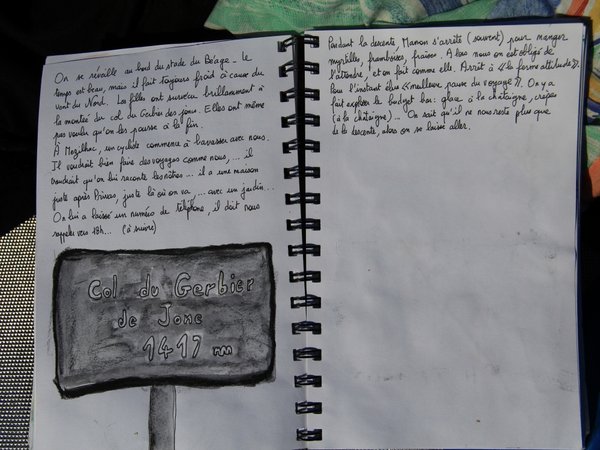 On se réveille au bord du stade du Béage. Le
temps est beau, mais il fait toujours froid à cause du
vent du Nord. Les filles ont survécu brillamment à
la montée du col du Gerbier des joncs. Elles ont même
pas voulu qu'on les pousse à la fin.
À Mezilhac, un cycliste commence à bavasser avec nous.
Il voudrait bien faire des voyages comme nous, ... il
voudrait qu'on lui raconte les nôtres... il a une maison
juste après Privas, juste là où on va, ... avec un jardin...
On lui a laissé un numéro de téléphone, il doit nous
rappeler vers 18h... (à suivre)
Col du Gerbier
de Jonc
1417 m
Pendant la descente, Manon s'arrête (souvent) pour manger
myrtilles, framboises, fraises. Alors nous on est obligé de
l'attendre, et on fait comme elle. Arrêt à « la ferme attitude ».
Pour l'instant élue « meilleure pause du voyage ». On y a
fait exploser le budget bar: glace à la châtaigne, crêpes
(à la châtaigne)... On sait qu'il ne nous reste plus que
de la descente, alors on se laisse aller.